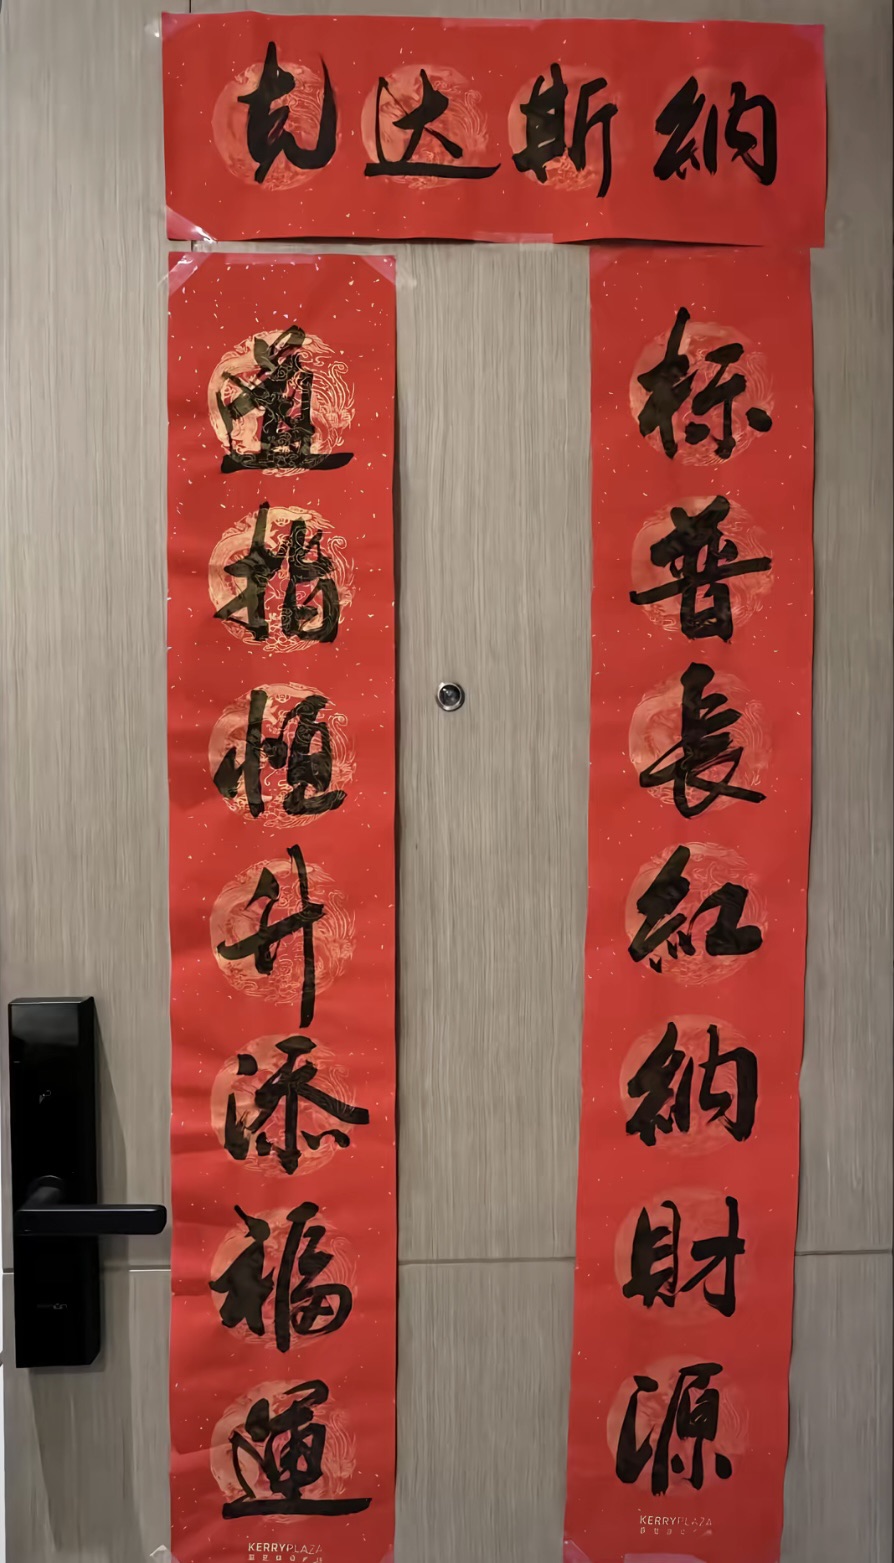 納斯达克
标普長紅納財源
道指恒升添福運
KERRYPLAZA
KERRYPLAZA